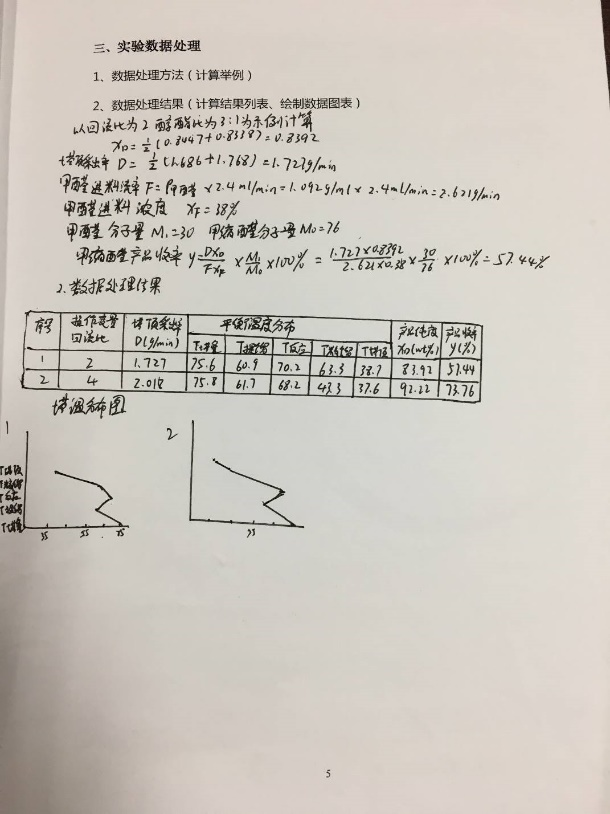 三、实验数据处理
1、数据处理方法（计算举例）
2、数据处理结果（计算结果列表、绘制数据图表）
以回流比为2 醇醛比为3:1为示例计算
x_D = 1/2 (0.8447+0.8338) = 0.8392
塔顶采出率 D = 1/2 (1.686+1.768) = 1.727g/min
甲醛进料流率 F=ρ甲醛 ×2.4ml/min=1.092g/ml × 2.4ml/min=2.621g/min
甲醛进料浓度 x_F=38%
甲醛分子量 M₁=30 甲缩醛分子量 M₀=76
甲缩醛产品收率 y= Dx_D/Fx_F × M₁/M₀ ×100% = 1.727×0.8392/2.621×0.38 × 30/76 ×100% = 57.44%
2.数据处理结果
序号 操作变量回流比 塔顶采出率D(g/min) 平衡温度分布 产品纯度x_D(wt%) 产品收率y(%)
T塔釜 T提馏 T反应 T精馏 T塔顶
1 2 1.727 75.6 60.9 70.2 63.3 38.7 83.92 57.44
2 4 2.018 75.8 61.7 68.2 43.3 37.6 92.22 73.76
塔温分布图
1 2
T塔顶
T精馏
T反应
T提馏
T塔釜
35 55 75 55
5